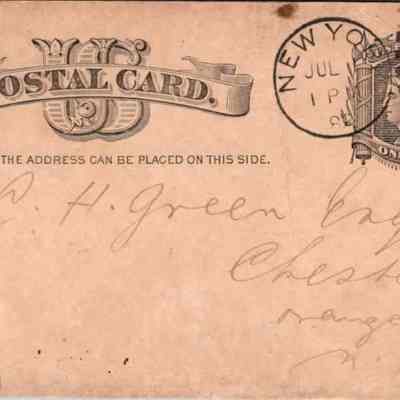 U S
POSTAL CARD.
NEW YO
JUL 1
1 P
THE ADDRESS CAN BE PLACED ON THIS SIDE.
ON
C. H. Green Esq
Cheste
Orange
N.